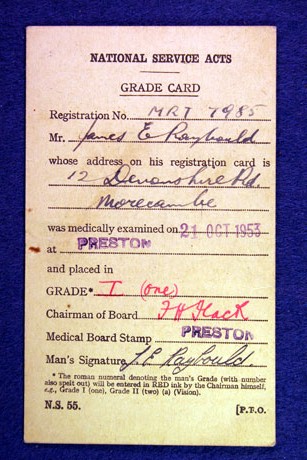 NATIONAL SERVICE ACTS
GRADE CARD
Registration No. MRT 7985
Mr. James E Raybould
whose address on his registration card is
12 Devonshire Rd.
Morecambe
was medically examined on 21 OCT 1953
at PRESTON
and placed in
GRADE* I (one)
Chairman of Board
Medical Board Stamp PRESTON
Man's Signature J.E Raybould
* The roman numeral denoting the man's Grade (with number
also spelt out) will be entered in RED ink by the Chairman himself,
e.g., Grade I (one), Grade II (two) (a) (Vision).
N.S. 55. [P.T.O.